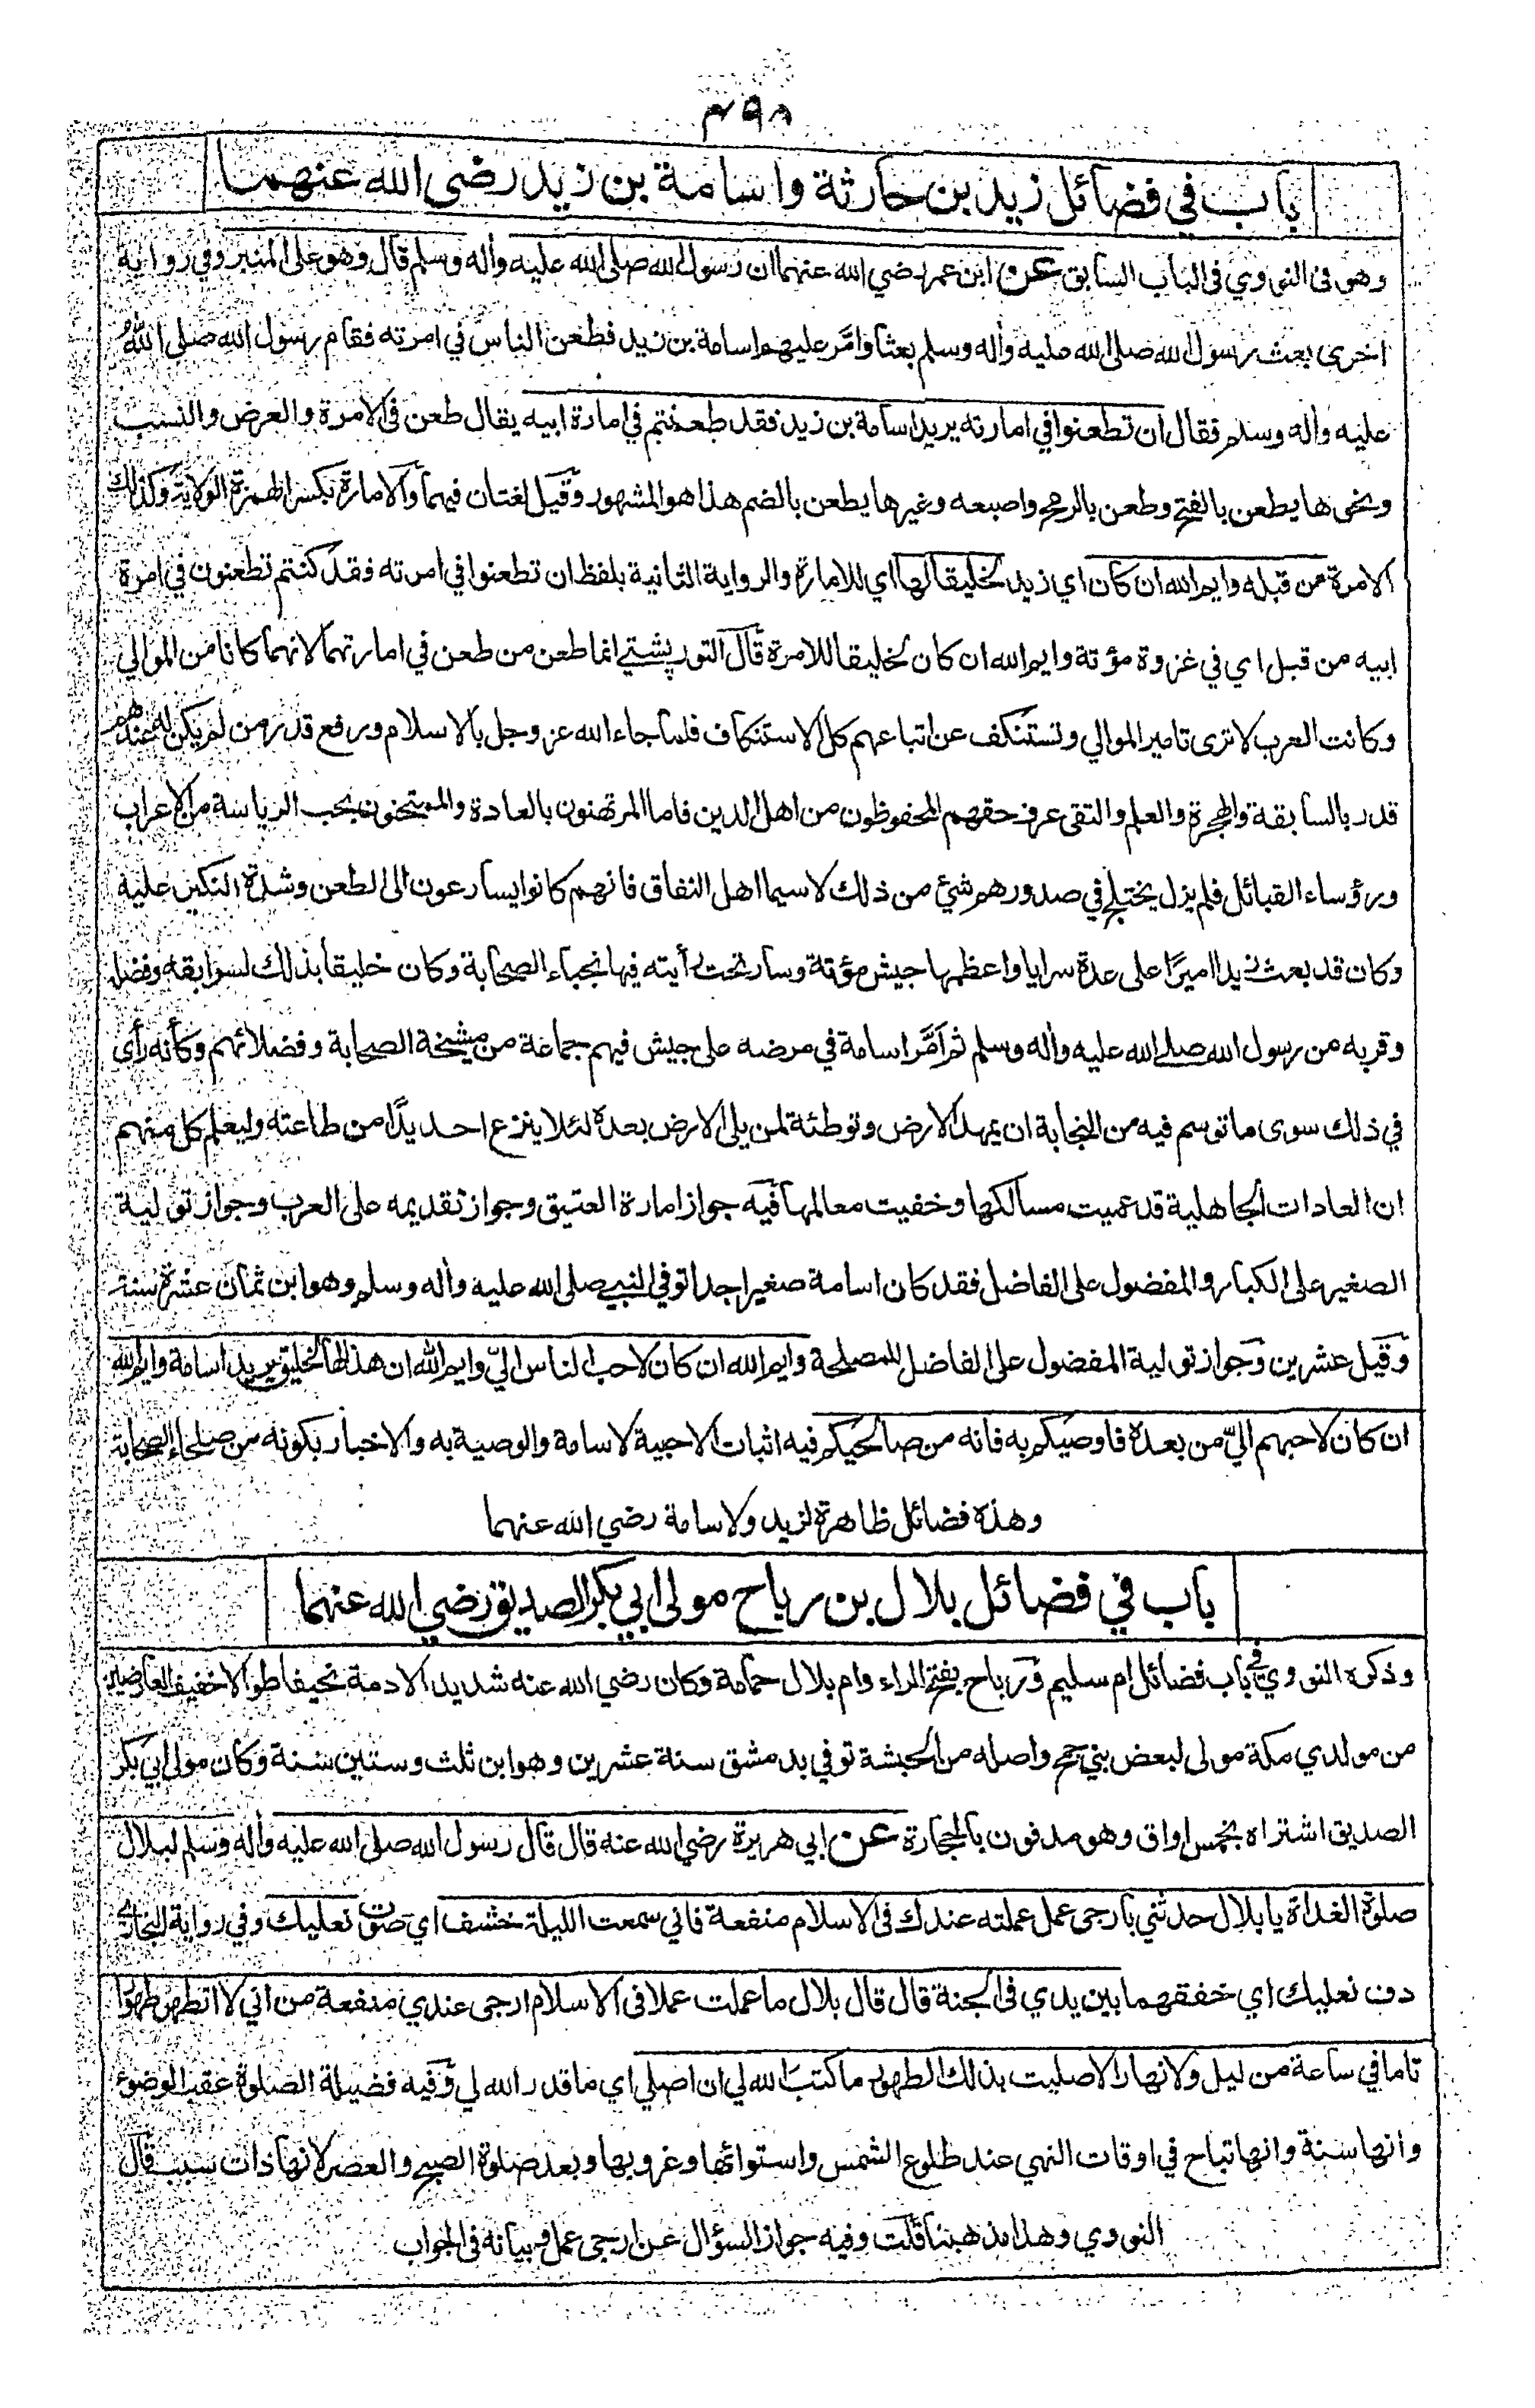 ٤٩٨
باب في فضائل زيد بن حارثة واسامة بن زيد رضي الله عنهما
وهو في النووي في الباب السابق عن ابن عمر رضي الله عنهما ان رسول الله صلى الله عليه واٰله وسلم قال وهو على المنبر وفي رواية
اخرى بعث رسول الله صلى الله عليه واٰله وسلم بعثا وامَّر عليهم اسامة بن زيد فطعن الناس في امرته فقام رسول الله صلى اللهُ
عليه واٰله وسلم فقال ان تطعنوا في امارته يريد اسامة بن زيد فقد طعنتم في امارة ابيه يقال طعن في الامرة والعرض والنسب
ونحوها يطعن بالفتح وطعن بالرمح واصبعه وغيرها يطعن بالضم هذا هو المشهور وقيل لغتان فيهما والامارة بكسر الهمزة الولاية وكذلك
الامرة من قبله وايم الله ان كان اي زيد لخليقا لها اي للامارة والرواية الثانية بلفظ ان تطعنوا في امرته فقد كنتم تطعنون في امرة
ابيه من قبل اي في غزوة مؤتة وايم الله ان كان لخليقا للامرة قال التورپشتي انما طعن من طعن في امارتهما لانهما كانا من الموالي
وكانت العرب لا ترى تامير الموالي وتستنكف عن اتباعهم كل الاستنكاف فلما جاء الله عز وجل بالاسلام ورفع قدر من لم يكن له عندهم
قدر بالسابقة والهجرة والعلم والتقى عرف حقهم المحفوظون من اهل الدين فاما المرتهنون بالعادة والممتحنون بحب الرياسة من الاعراب
ورؤساء القبائل فلم يزل يختلج في صدورهم شيء من ذلك لاسيما اهل النفاق فانهم كانوا يسارعون الى الطعن وشدة النكير عليه
وكان قد بعث زيدا اميرًا على عدة سرايا واعظمها جيش مؤتة وسار تحت رأيته فيها نجباء الصحابة وكان خليقا بذلك لسوابقه وفضله
وقربه من رسول الله صلى الله عليه واٰله وسلم ثم اَمَّر اسامة في مرضه على جيش فيهم جماعة من مشيخة الصحابة وفضلائهم وكأنه رأى
في ذلك سوى ما توسم فيه من النجابة ان يمهد الارض وتوطئة لمن يلي الارض بعده لئلا ينزع احد يدًا من طاعته وليعلم كل منهم
ان العادات الجاهلية قد عميت مسالكها وخفيت معالمها فيه جواز امارة العتيق وجواز تقديمه على العرب وجواز تولية
الصغير على الكبار والمفضول على الفاضل فقد كان اسامة صغيرا جدا توفي النبي صلى الله عليه واٰله وسلم وهو ابن ثمان عشرة سنة
وقيل عشرين وجواز تولية المفضول على الفاضل للمصلحة وايم الله ان كان لاحب الناس اليّ وايم الله ان هذا لها لخليق يريد اسامة وايم الله
ان كان لاحبهم اليّ من بعده فاوصيكم به فانه من صالحيكم فيه اثبات الاحبية لاسامة والوصية به والاخبار بكونه من صلحاء الصحابة
وهذه فضائل ظاهرة لزيد ولاسامة رضي الله عنهما
باب في فضائل بلال بن رباح مولى ابي بكر الصديق رضي الله عنهما
وذكره النووي في باب فضائل ام سليم ورباح بفتح الراء وام بلال حمامة وكان رضي الله عنه شديد الادمة نحيفا طوالا خفيف العارضين
من مولدي مكة مولى لبعض بني جمح واصله من الحبشة توفي بدمشق سنة عشرين وهو ابن ثلث وستين سنة وكان مولى ابي بكر
الصديق اشتراه بخمس اواق وهو مدفون بالحجارة عن ابي هريرة رضي الله عنه قال قال رسول الله صلى الله عليه واٰله وسلم لبلال
صلوة الغداة يا بلال حدثني بارجى عمل عملته عندك في الاسلام منفعة فاني سمعت الليلة خشف اي صوت نعليك وفي رواية البخاري
دف نعليك اي خفقهما بين يدي في الجنة قال قال بلال ما عملت عملا في الاسلام ارجى عندي منفعة من اني لا اتطهر طهورا
تاما في ساعة من ليل ولا نهار الا صليت بذلك الطهور ما كتب الله لي ان اصلي اي ما قدر الله لي وفيه فضيلة الصلوة عقب الوضوء
وانها سنة وانها تباح في اوقات النهي عند طلوع الشمس واستوائها وغروبها وبعد صلوة الصبح والعصر لانها ذات سبب قال
النووي وهذا مذهبنا قلت وفيه جواز السؤال عن ارجى عمل وبيانه في الجواب